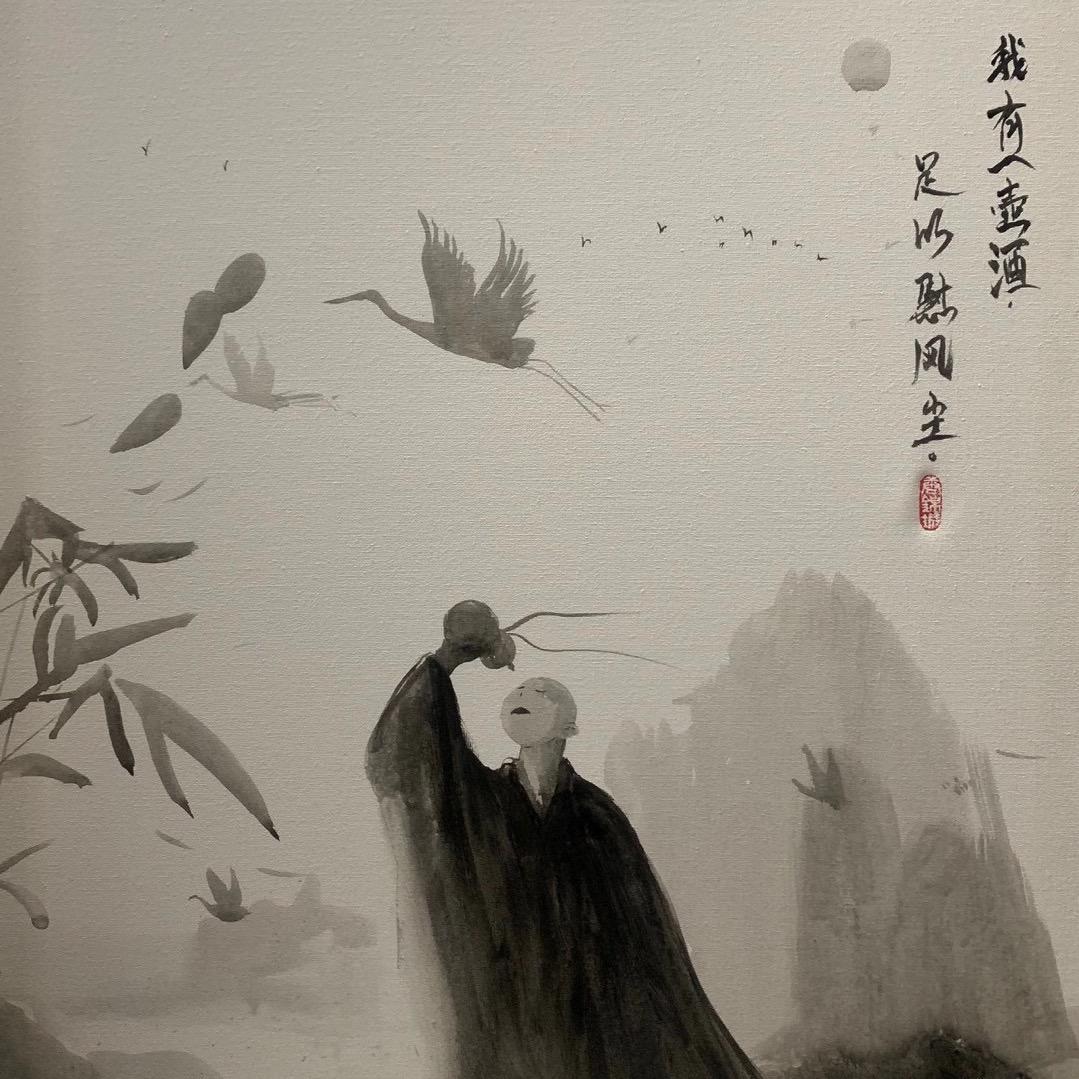 我有一壶酒.
足以慰风尘。